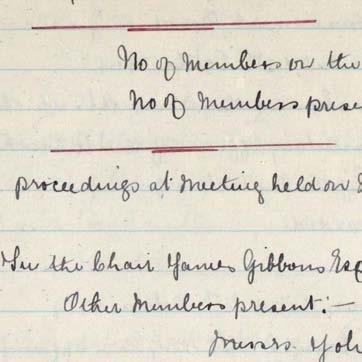 No of Members on the
No of Members prese
proceedings at Meeting held on
In the Chair James Gibbons Esq
Other Members present:—
Messrs Joh